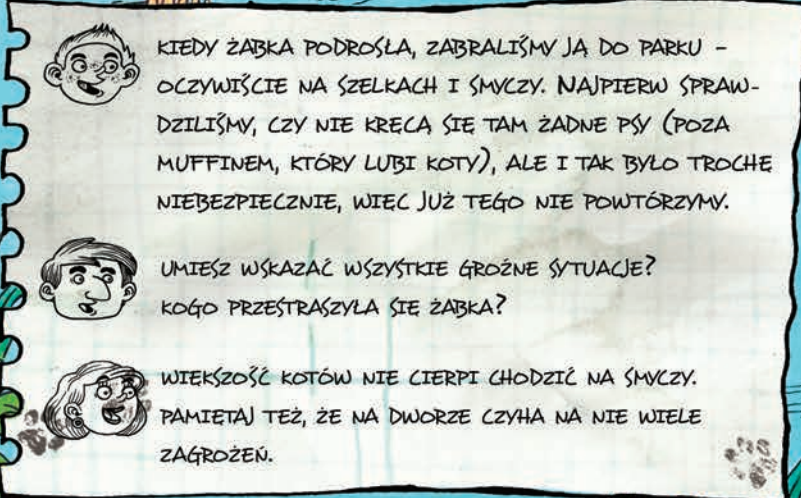 KIEDY ŻABKA PODROSŁA, ZABRALIŚMY JĄ DO PARKU –
OCZYWIŚCIE NA SZELKACH I SMYCZY. NAJPIERW SPRAW-
DZILIŚMY, CZY NIE KRĘCĄ SIĘ TAM ŻADNE PSY (POZA
MUFFINEM, KTÓRY LUBI KOTY), ALE I TAK BYŁO TROCHĘ
NIEBEZPIECZNIE, WIĘC JUŻ TEGO NIE POWTÓRZYMY.
UMIESZ WSKAZAĆ WSZYSTKIE GROŹNE SYTUACJE?
KOGO PRZESTRASZYŁA SIĘ ŻABKA?
WIĘKSZOŚĆ KOTÓW NIE CIERPI CHODZIĆ NA SMYCZY.
PAMIĘTAJ TEŻ, ŻE NA DWORZE CZYHA NA NIE WIELE
ZAGROŻEŃ.